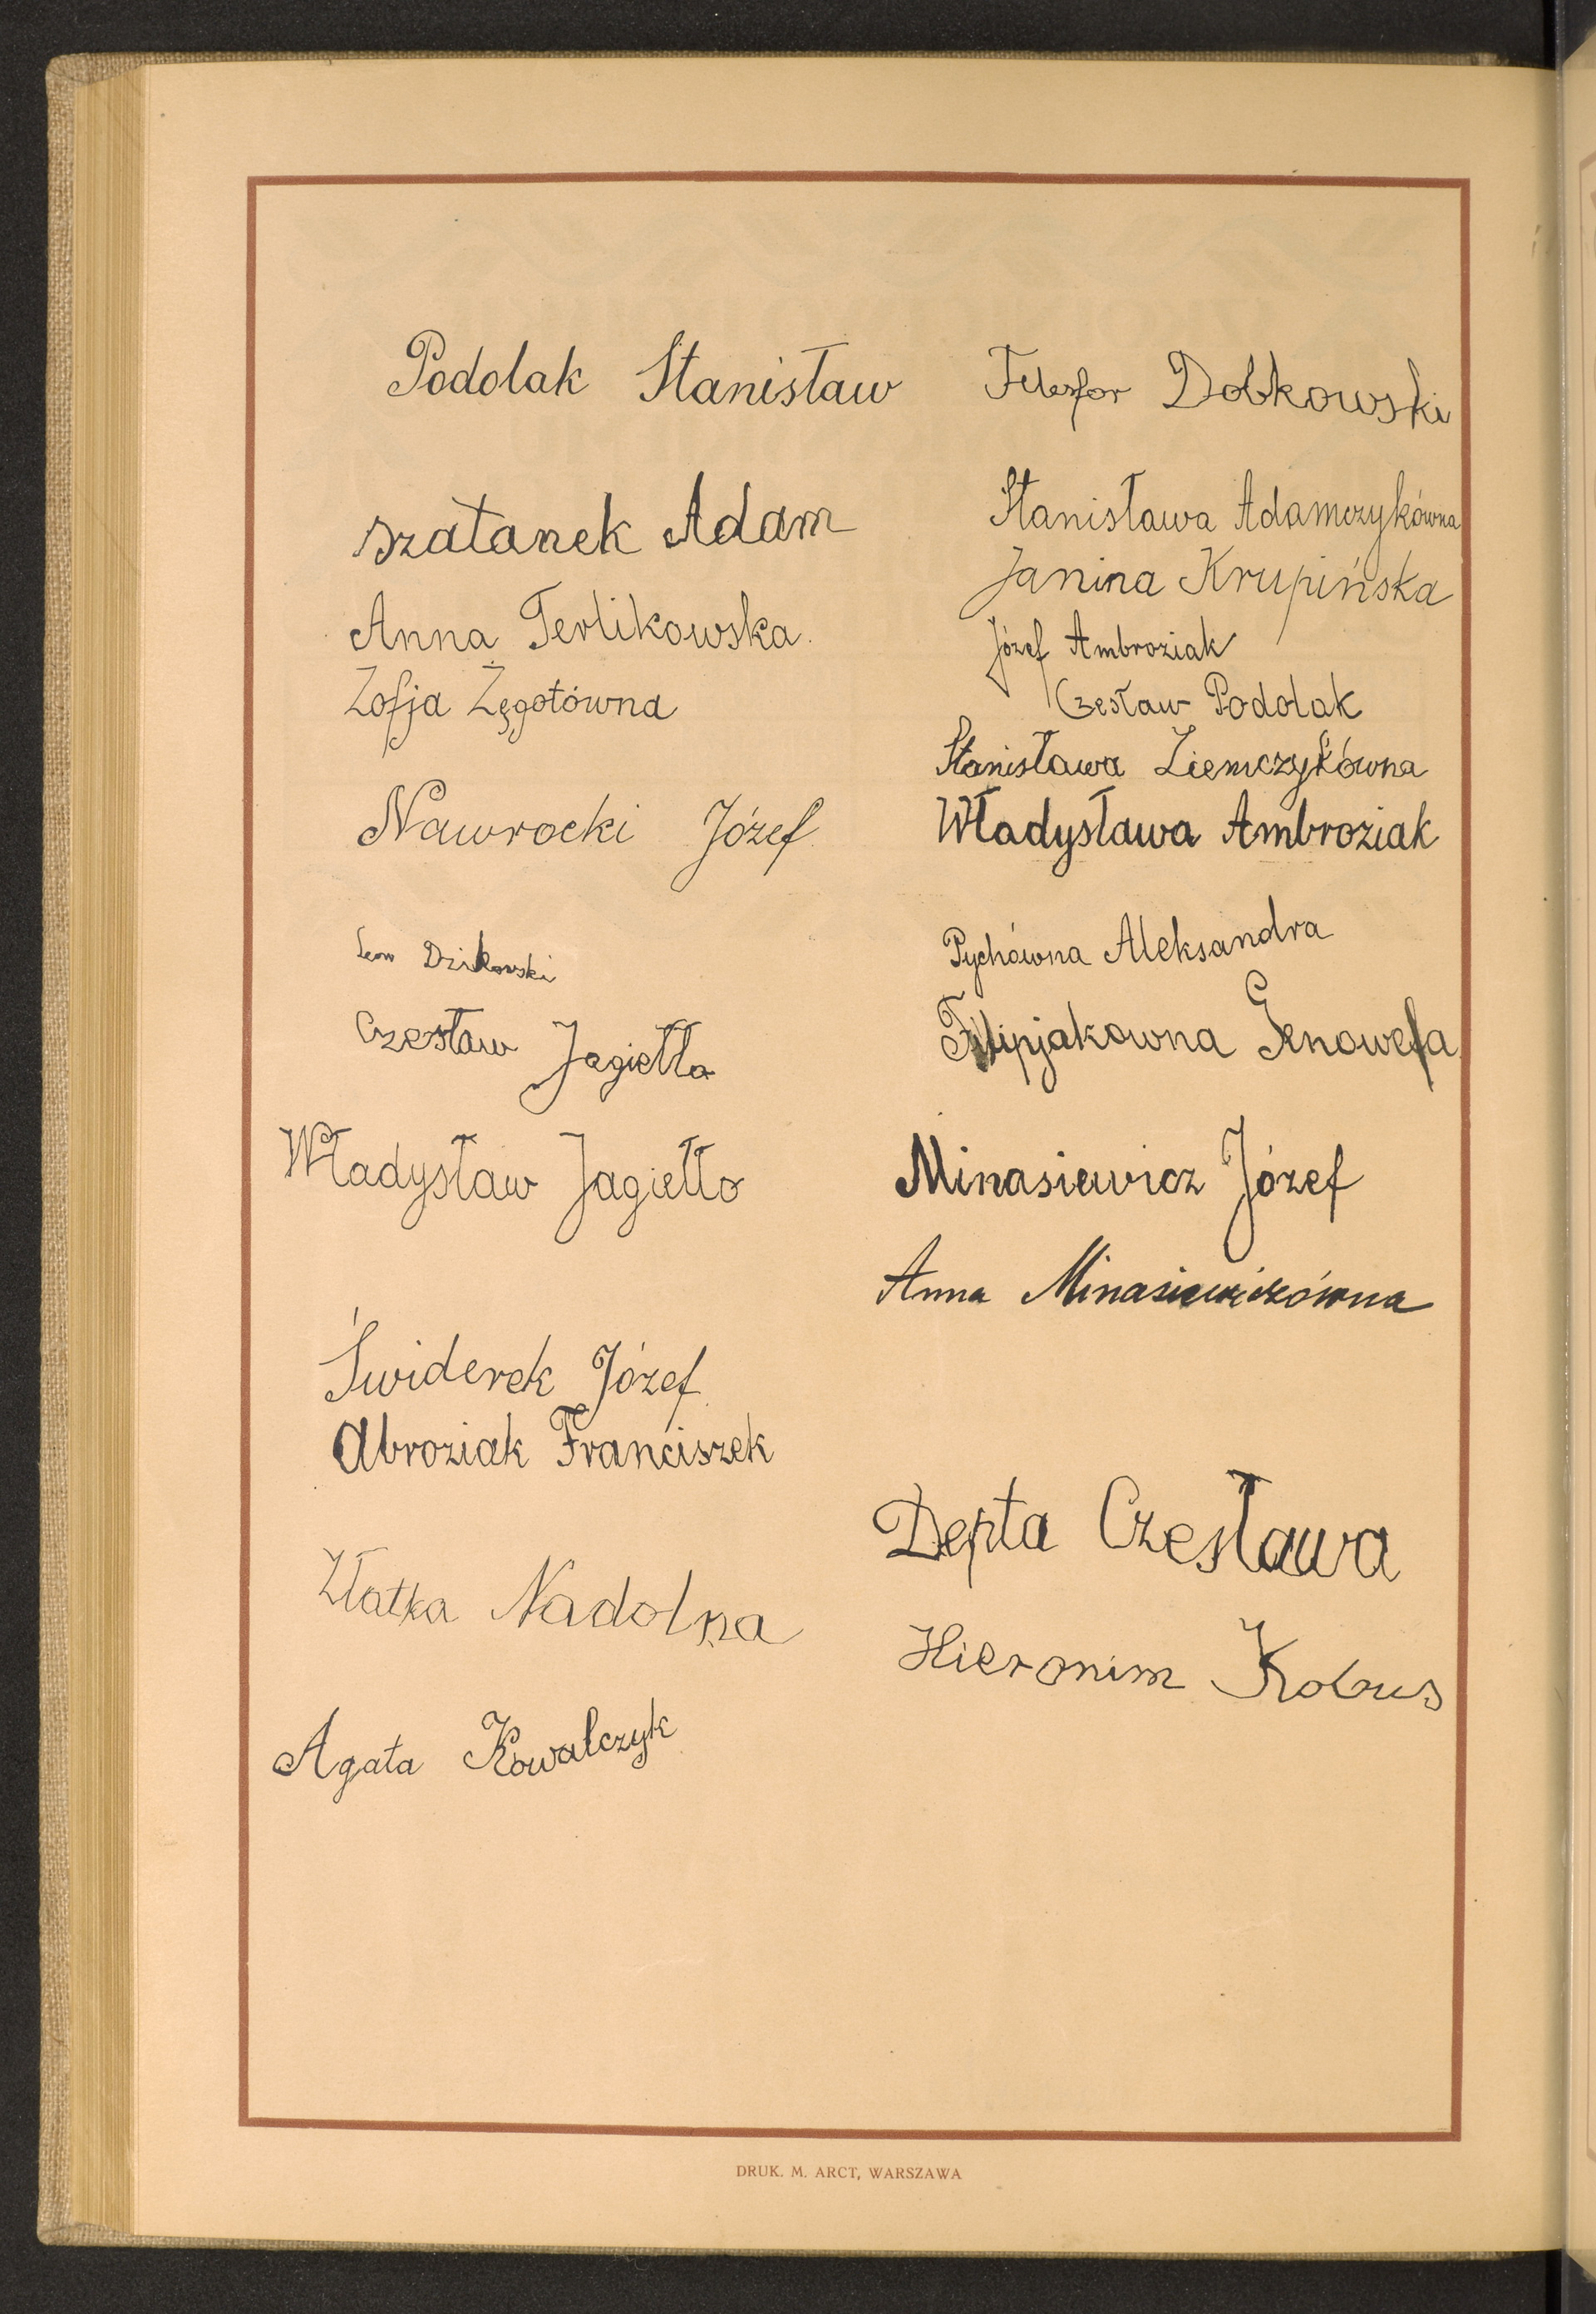 Podolak Stanisław
szatanek Adam
Anna Terlikowska.
Zofja Żęgotówna
Nawrocki Józef
Leon Dzikowski
Czesław Jagiełło
Władysław Jagiełło
Świderek Józef
Abroziak Franciszek
Złatka Nadolna
Agata Kowalczyk
Dobkowski
Stanisława Adamczykówna
Janina Krupińska
Józef Ambroziak
Czesław Podolak
Stanisława Ziemczykówna
Władysława Ambroziak
Pychówna Aleksandra
Filipjakowna Genowefa
Minasiewicz Józef
Anna Minasiewiczówna
Depta Czesława
Hieronim Kobus
DRUK. M. ARCT, WARSZAWA